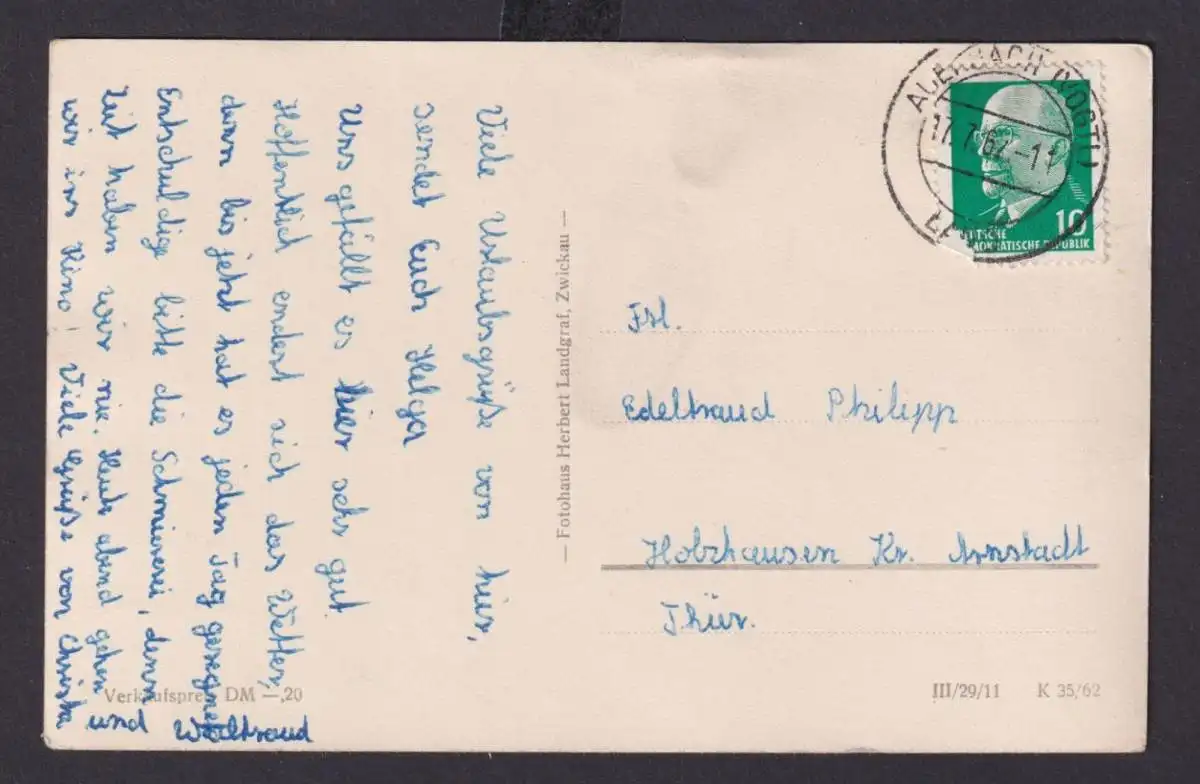 Viele Urlaubsgrüße von hier,
sendet Euch Helga
Uns gefällt es hier sehr gut.
Hoffentlich endert sich das Wetter,
denn bis jetzt hat es jeden Tag geregnet
Entschuldige bitte die Schmiererei, denn
Zeit haben wir nie. Heute abend gehen
wir ins Kino! Viele Grüße von Christa
und Waltraud
Verkaufspreis DM —,20
— Fotohaus Herbert Landgraf, Zwickau —
AUERBACH (VOGTL)
17.7.62-11
10
DEUTSCHE
DEMOKRATISCHE REPUBLIK
Frl.
Edeltraud Philipp
Holzhausen Kr. Arnstadt
Thür.
III/29/11 K 35/62